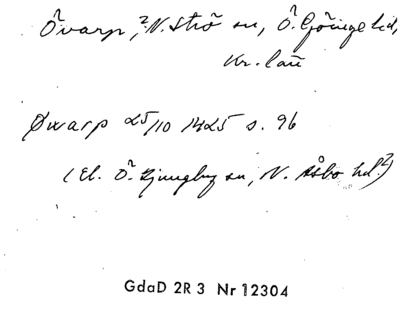 Övarp, ? N. Strö sn, Ö. Göinge hd,
Kr. län
Øwarp 25/10 1425 s. 96
(El. Ö. Ljungby sn, N. Åsbo hd?)
GdaD 2R3 Nr 12304